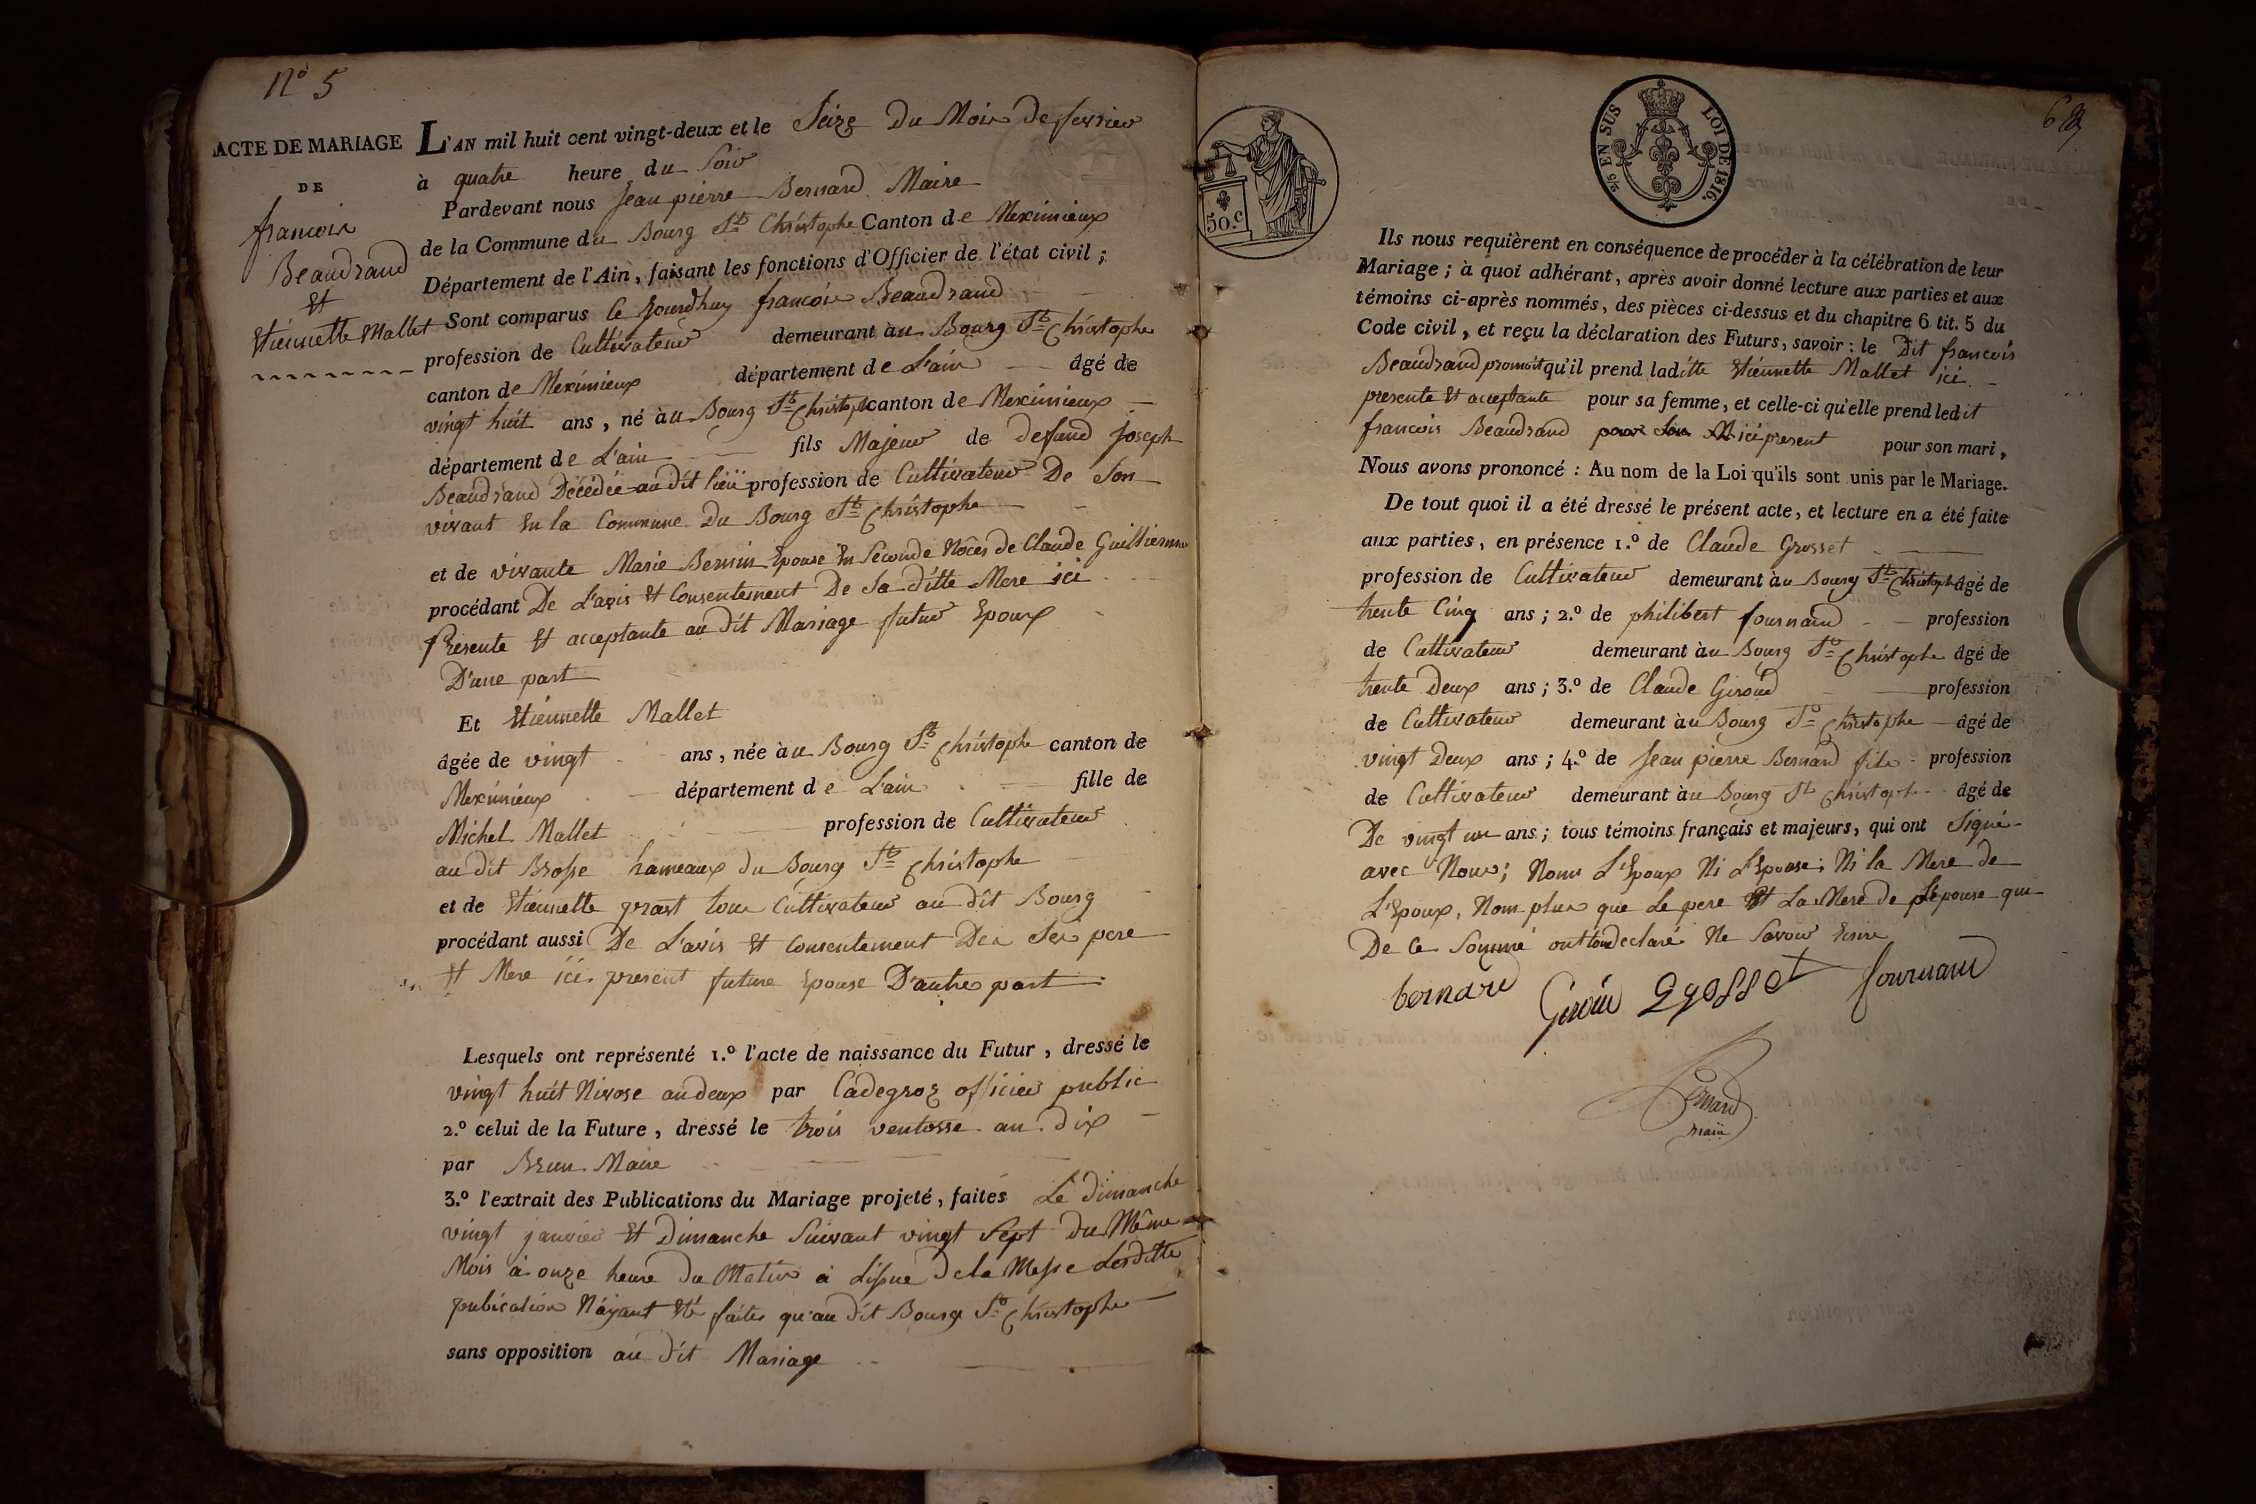 N° 5
ACTE DE MARIAGE
DE
francois
Beaudrand
Et
Etiennette Mallet
L'AN mil huit cent vingt-deux et le Seize Du Mois De fevrier
à quatre heure du Soir
Pardevant nous Jean pierre Bernard Maire
de la Commune du Bourg St Christophe Canton de Meximieux
Département de l'Ain, faisant les fonctions d'Officier de l'état civil;
Sont comparus Ce Jourdhuy francois Beaudrand
profession de Cultivateur demeurant au Bourg St Christophe
canton de Meximieux département de L'ain âgé de
vingt huit ans, né au Bourg St Christoph canton de Meximieux
département de L'ain fils Majeur de defund joseph
Beaudrand Décédée au dit lieu profession de Cultivateur De Son
vivant En la Commune Du Bourg St Christophe
et de vivante Marie Epouse En Seconde Nôces de Claude
procédant De L'avis Et Consentement De Sa ditte Mere ici
presente Et acceptante au dit Mariage futur Epoux
D'une part
Et Etiennette Mallet
âgée de vingt ans, née au Bourg St Christophe canton de
Meximieux département de L'ain fille de
Michel Mallet profession de Cultivateur
au dit Brosse hameaux du Bourg St Christophe
et de Etiennette tous Cultivateur au dit Bourg
procédant aussi De L'avis Et Consentement Des Ses pere
Et Mere ici present future Epouse D'autre part
Lesquels ont représenté 1.° l'acte de naissance du Futur, dressé le
vingt huit Nivose an deux par Cadegroz officier public
2.° celui de la Future, dressé le trois ventosse an dix
par Brun Maire
3.° l'extrait des Publications du Mariage projeté, faites Le dimanche
vingt janvier Et Dimanche Suivant vingt Sept du Même
Mois à onze heure du Matin à L'issue De la Messe Lesditte
publication N'ayant Eté faites qu'au dit Bourg St Christophe
sans opposition au dit Mariage
50.c
c/5 EN SUS
LOI DE 1816.
6
Ils nous requièrent en conséquence de procéder à la célébration de leur
Mariage; à quoi adhérant, après avoir donné lecture aux parties et aux
témoins ci-après nommés, des pièces ci-dessus et du chapitre 6 tit. 5 du
Code civil, et reçu la déclaration des Futurs, savoir: le Dit francois
Beaudrand promoit qu'il prend laditte Etiennette Mallet ici
presente Et acceptante pour sa femme, et celle-ci qu'elle prend ledit
francois Beaudrand pour Son M ici present pour son mari,
Nous avons prononcé: Au nom de la Loi qu'ils sont unis par le Mariage.
De tout quoi il a été dressé le présent acte, et lecture en a été faite
aux parties, en présence 1.° de Claude Grosset
profession de Cultivateur demeurant au Bourg St Christophe âgé de
trente Cinq ans; 2.° de philibert fournand profession
de Cultivateur demeurant au Bourg St Christophe âgé de
trente Deux ans; 3.° de Claude profession
de Cultivateur demeurant au Bourg St Christophe âgé de
vingt Deux ans; 4.° de Jean pierre Bernard fils profession
de Cultivateur demeurant au Bourg St Christophe âgé de
De vingt un ans; tous témoins français et majeurs, qui ont Signé
avec Nous; Nonu L'Epoux Ni L'Epouse; Ni la Mere de
L'Epoux, Nom plus que Le pere Et La Mere de L'Epouse qui
De Ce Sommé ont tous declaré Ne Savoir Ecrire
bernard
grosset
fournand
Bernard
maire